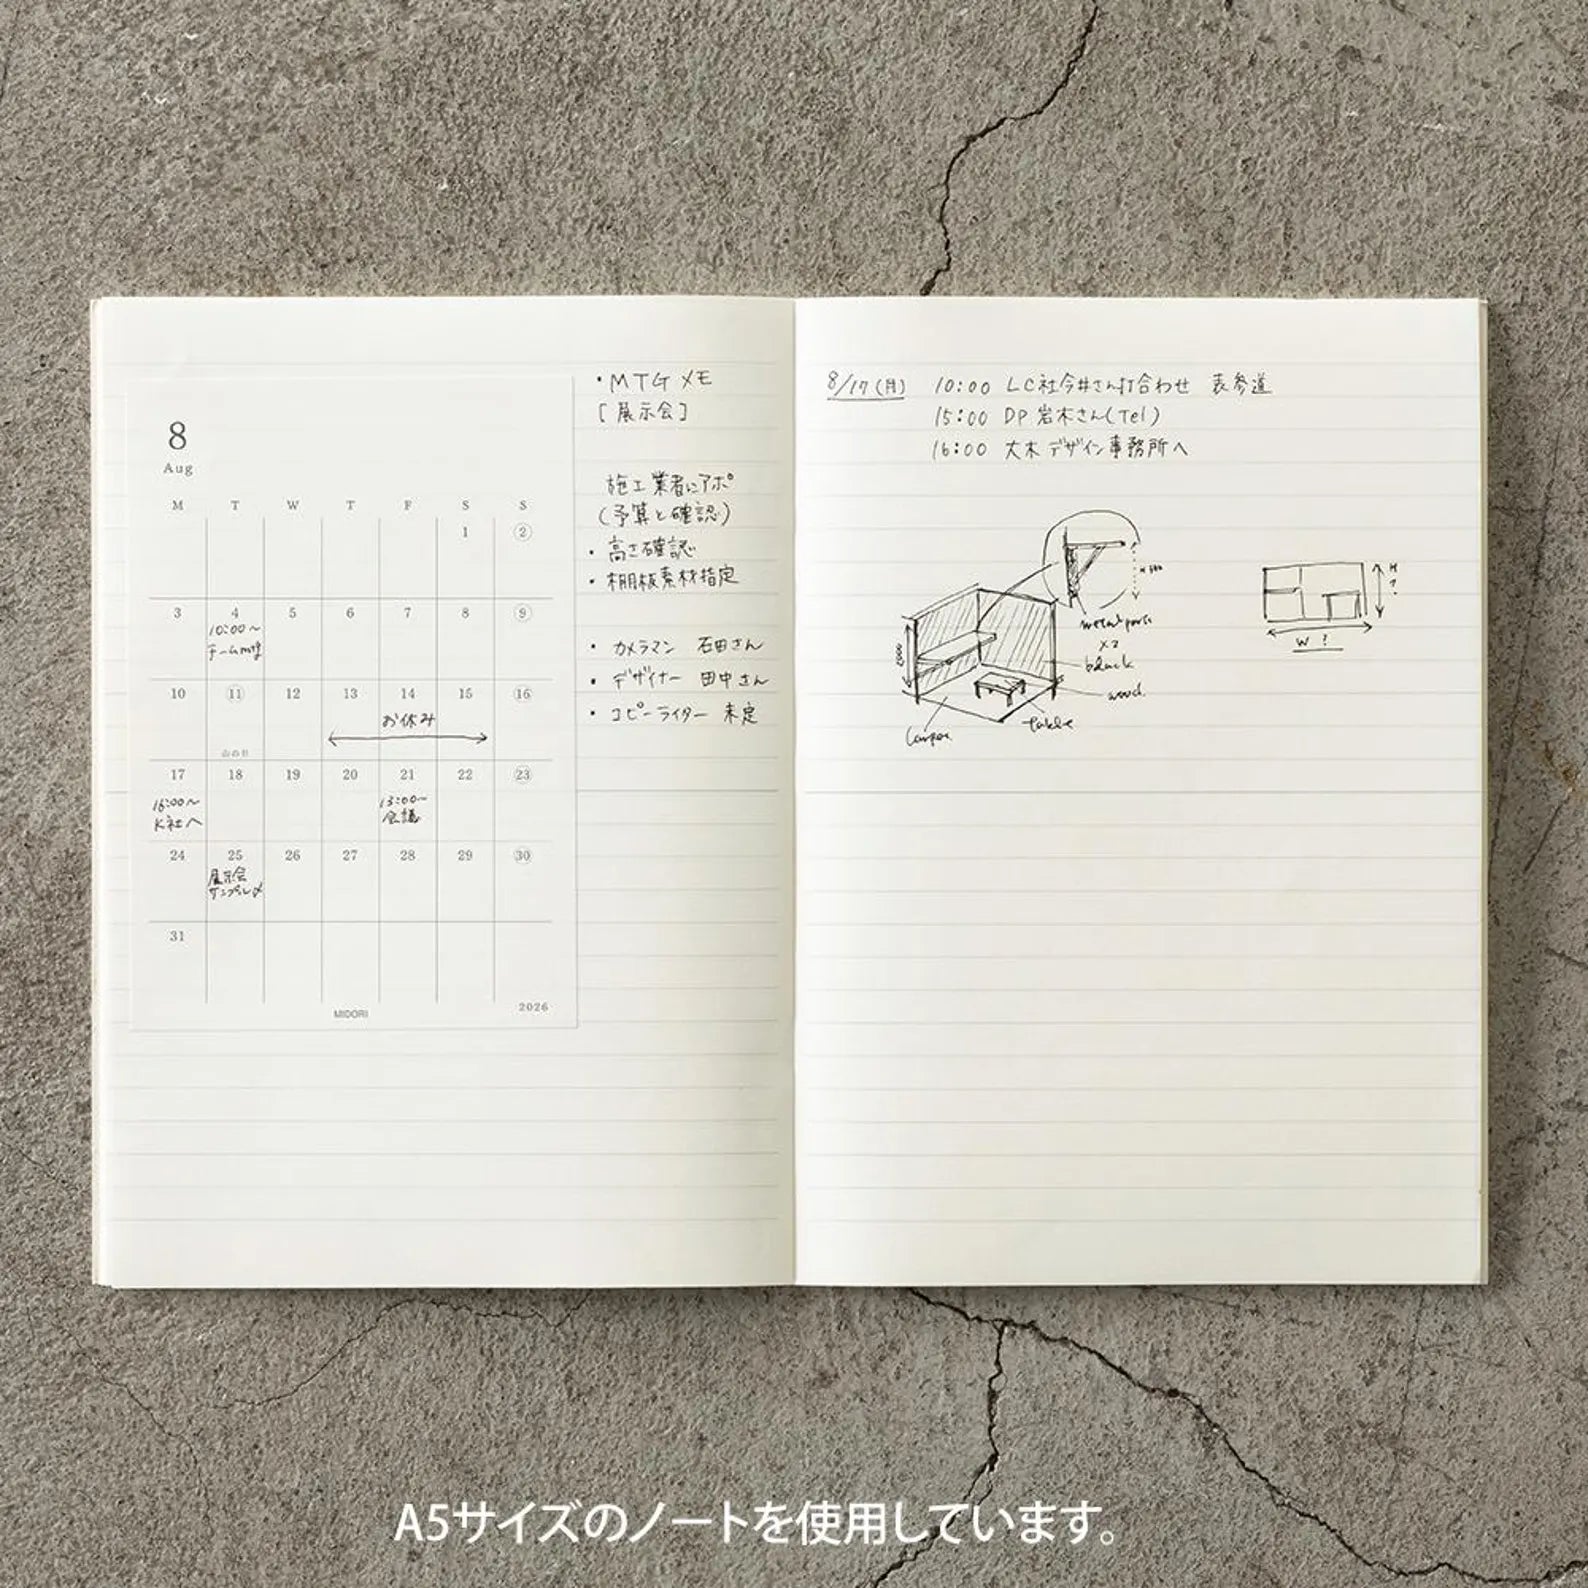 8
Aug
M T W T F S S
1 2
3 4 5 6 7 8 9
10:00〜
チームmtg
10 11 12 13 14 15 16
お休み
山の日
17 18 19 20 21 22 23
16:00〜
K社へ
13:00〜
会議
24 25 26 27 28 29 30
展示会
サンプル〆
31
MIDORI
2026
・MTGメモ
[展示会]
施工業者にアポ
(予算と確認)
・高さ確認
・棚板素材指定
・カメラマン 石田さん
・デザイナー 田中さん
・コピーライター 未定
8/17(月) 10:00 LC社今井さん打合わせ 表参道
15:00 DP岩木さん(Tel)
16:00 大木デザイン事務所へ
metal parts
×2
black
wood
table
H
?
W ?
A5サイズのノートを使用しています。